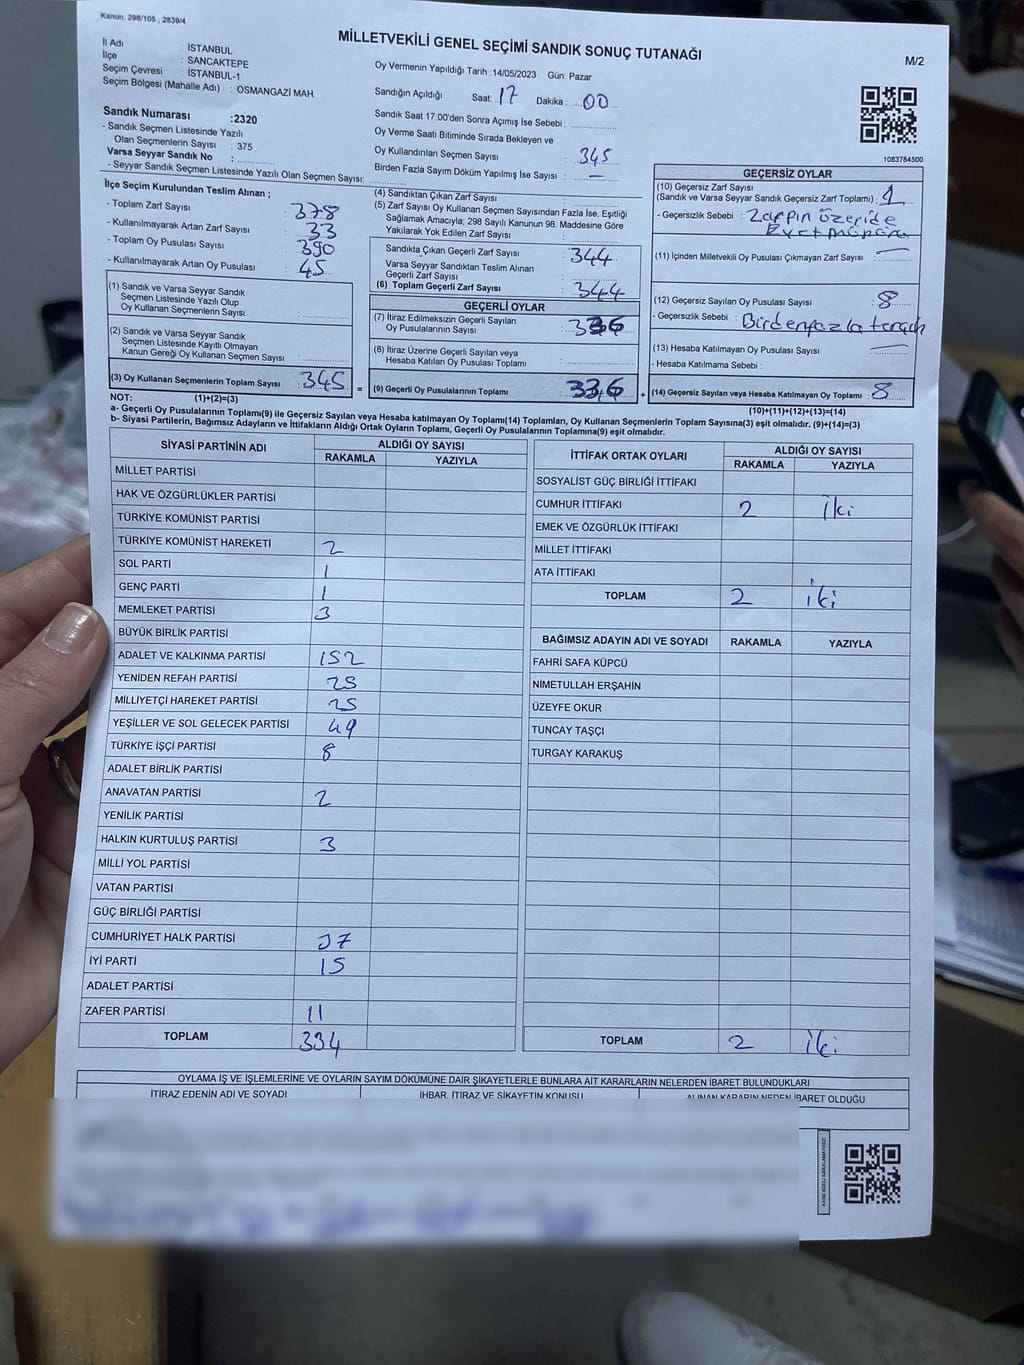 Kanun: 298/105 , 2839/4
MİLLETVEKİLİ GENEL SEÇİMİ SANDIK SONUÇ TUTANAĞI
M/2
İl Adı : İSTANBUL
İlçe : SANCAKTEPE
Seçim Çevresi : İSTANBUL-1
Seçim Bölgesi (Mahalle Adı) : OSMANGAZİ MAH.
Sandık Numarası :2320
- Sandık Seçmen Listesinde Yazılı
Olan Seçmenlerin Sayısı : 375
Varsa Seyyar Sandık No :
- Seyyar Sandık Seçmen Listesinde Yazılı Olan Seçmen Sayısı:
Oy Vermenin Yapıldığı Tarih :14/05/2023 Gün: Pazar
Sandığın Açıldığı Saat: 17 Dakika : 00
Sandık Saat 17:00'den Sonra Açımış İse Sebebi :
Oy Verme Saati Bitiminde Sırada Bekleyen ve
Oy Kullandırılan Seçmen Sayısı : 345
Birden Fazla Sayım Döküm Yapılmış İse Sayısı : —
1083784500
İlçe Seçim Kurulundan Teslim Alınan ;
- Toplam Zarf Sayısı : 378
- Kullanılmayarak Artan Zarf Sayısı : 33
- Toplam Oy Pusulası Sayısı : 390
- Kullanılmayarak Artan Oy Pusulası : 45
(1) Sandık ve Varsa Seyyar Sandık
Seçmen Listesinde Yazılı Olup
Oy Kullanan Seçmenlerin Sayısı :
(2) Sandık ve Varsa Seyyar Sandık
Seçmen Listesinde Kayıtlı Olmayan
Kanun Gereği Oy Kullanan Seçmen Sayısı :
(3) Oy Kullanan Seçmenlerin Toplam Sayısı : 345
(4) Sandıktan Çıkan Zarf Sayısı :
(5) Zarf Sayısı Oy Kullanan Seçmen Sayısından Fazla İse, Eşitliği
Sağlamak Amacıyla; 298 Sayılı Kanunun 98. Maddesine Göre
Yakılarak Yok Edilen Zarf Sayısı :
Sandıkta Çıkan Geçerli Zarf Sayısı : 344
Varsa Seyyar Sandıktan Teslim Alınan
Geçerli Zarf Sayısı :
(6) Toplam Geçerli Zarf Sayısı : 344
GEÇERLİ OYLAR
(7) İtiraz Edilmeksizin Geçerli Sayılan
Oy Pusulalarının Sayısı : 336
(8) İtiraz Üzerine Geçerli Sayılan veya
Hesaba Katılan Oy Pusulası Toplamı :
= (9) Geçerli Oy Pusulalarının Toplamı : 336 +
GEÇERSİZ OYLAR
(10) Geçersiz Zarf Sayısı
(Sandık ve Varsa Seyyar Sandık Geçersiz Zarf Toplamı) : 1
- Geçersizlik Sebebi : Zarfın üzeride
Evet
(11) İçinden Milletvekili Oy Pusulası Çıkmayan Zarf Sayısı : —
(12) Geçersiz Sayılan Oy Pusulası Sayısı : 8
- Geçersizlik Sebebi : Birden fazla
(13) Hesaba Katılmayan Oy Pusulası Sayısı : —
- Hesaba Katılmama Sebebi :
(14) Geçersiz Sayılan veya Hesaba Katılmayan Oy Toplamı : 8
NOT: (1)+(2)=(3)
(10)+(11)+(12)+(13)=(14)
a- Geçerli Oy Pusulalarının Toplamı(9) ile Geçersiz Sayılan veya Hesaba katılmayan Oy Toplamı(14) Toplamları, Oy Kullanan Seçmenlerin Toplam Sayısına(3) eşit olmalıdır. (9)+(14)=(3)
b- Siyasi Partilerin, Bağımsız Adayların ve İttifakların Aldığı Ortak Oyların Toplamı, Geçerli Oy Pusulalarının Toplamına(9) eşit olmalıdır.
SİYASİ PARTİNİN ADI ALDIĞI OY SAYISI
RAKAMLA YAZIYLA
MİLLET PARTİSİ
HAK VE ÖZGÜRLÜKLER PARTİSİ
TÜRKİYE KOMÜNİST PARTİSİ
TÜRKİYE KOMÜNİST HAREKETİ 2
SOL PARTİ 1
GENÇ PARTİ 1
MEMLEKET PARTİSİ 3
BÜYÜK BİRLİK PARTİSİ
ADALET VE KALKINMA PARTİSİ 152
YENİDEN REFAH PARTİSİ 25
MİLLİYETÇİ HAREKET PARTİSİ 25
YEŞİLLER VE SOL GELECEK PARTİSİ 49
TÜRKİYE İŞÇİ PARTİSİ 8
ADALET BİRLİK PARTİSİ
ANAVATAN PARTİSİ 2
YENİLİK PARTİSİ
HALKIN KURTULUŞ PARTİSİ 3
MİLLİ YOL PARTİSİ
VATAN PARTİSİ
GÜÇ BİRLİĞİ PARTİSİ
CUMHURİYET HALK PARTİSİ 37
İYİ PARTİ 15
ADALET PARTİSİ
ZAFER PARTİSİ 11
TOPLAM 334
İTTİFAK ORTAK OYLARI ALDIĞI OY SAYISI
RAKAMLA YAZIYLA
SOSYALİST GÜÇ BİRLİĞİ İTTİFAKI
CUMHUR İTTİFAKI 2 iki
EMEK VE ÖZGÜRLÜK İTTİFAKI
MİLLET İTTİFAKI
ATA İTTİFAKI
TOPLAM 2 iki
BAĞIMSIZ ADAYIN ADI VE SOYADI RAKAMLA YAZIYLA
FAHRİ SAFA KÜPCÜ
NİMETULLAH ERŞAHİN
ÜZEYFE OKUR
TUNCAY TAŞÇI
TURGAY KARAKUŞ
TOPLAM 2 iki
OYLAMA İŞ VE İŞLEMLERİNE VE OYLARIN SAYIM DÖKÜMÜNE DAİR ŞİKAYETLERLE BUNLARA AİT KARARLARIN NELERDEN İBARET BULUNDUKLARI
İTİRAZ EDENİN ADI VE SOYADI İHBAR, İTİRAZ VE ŞİKAYETİN KONUSU ALINAN KARARIN NEDEN İBARET OLDUĞU